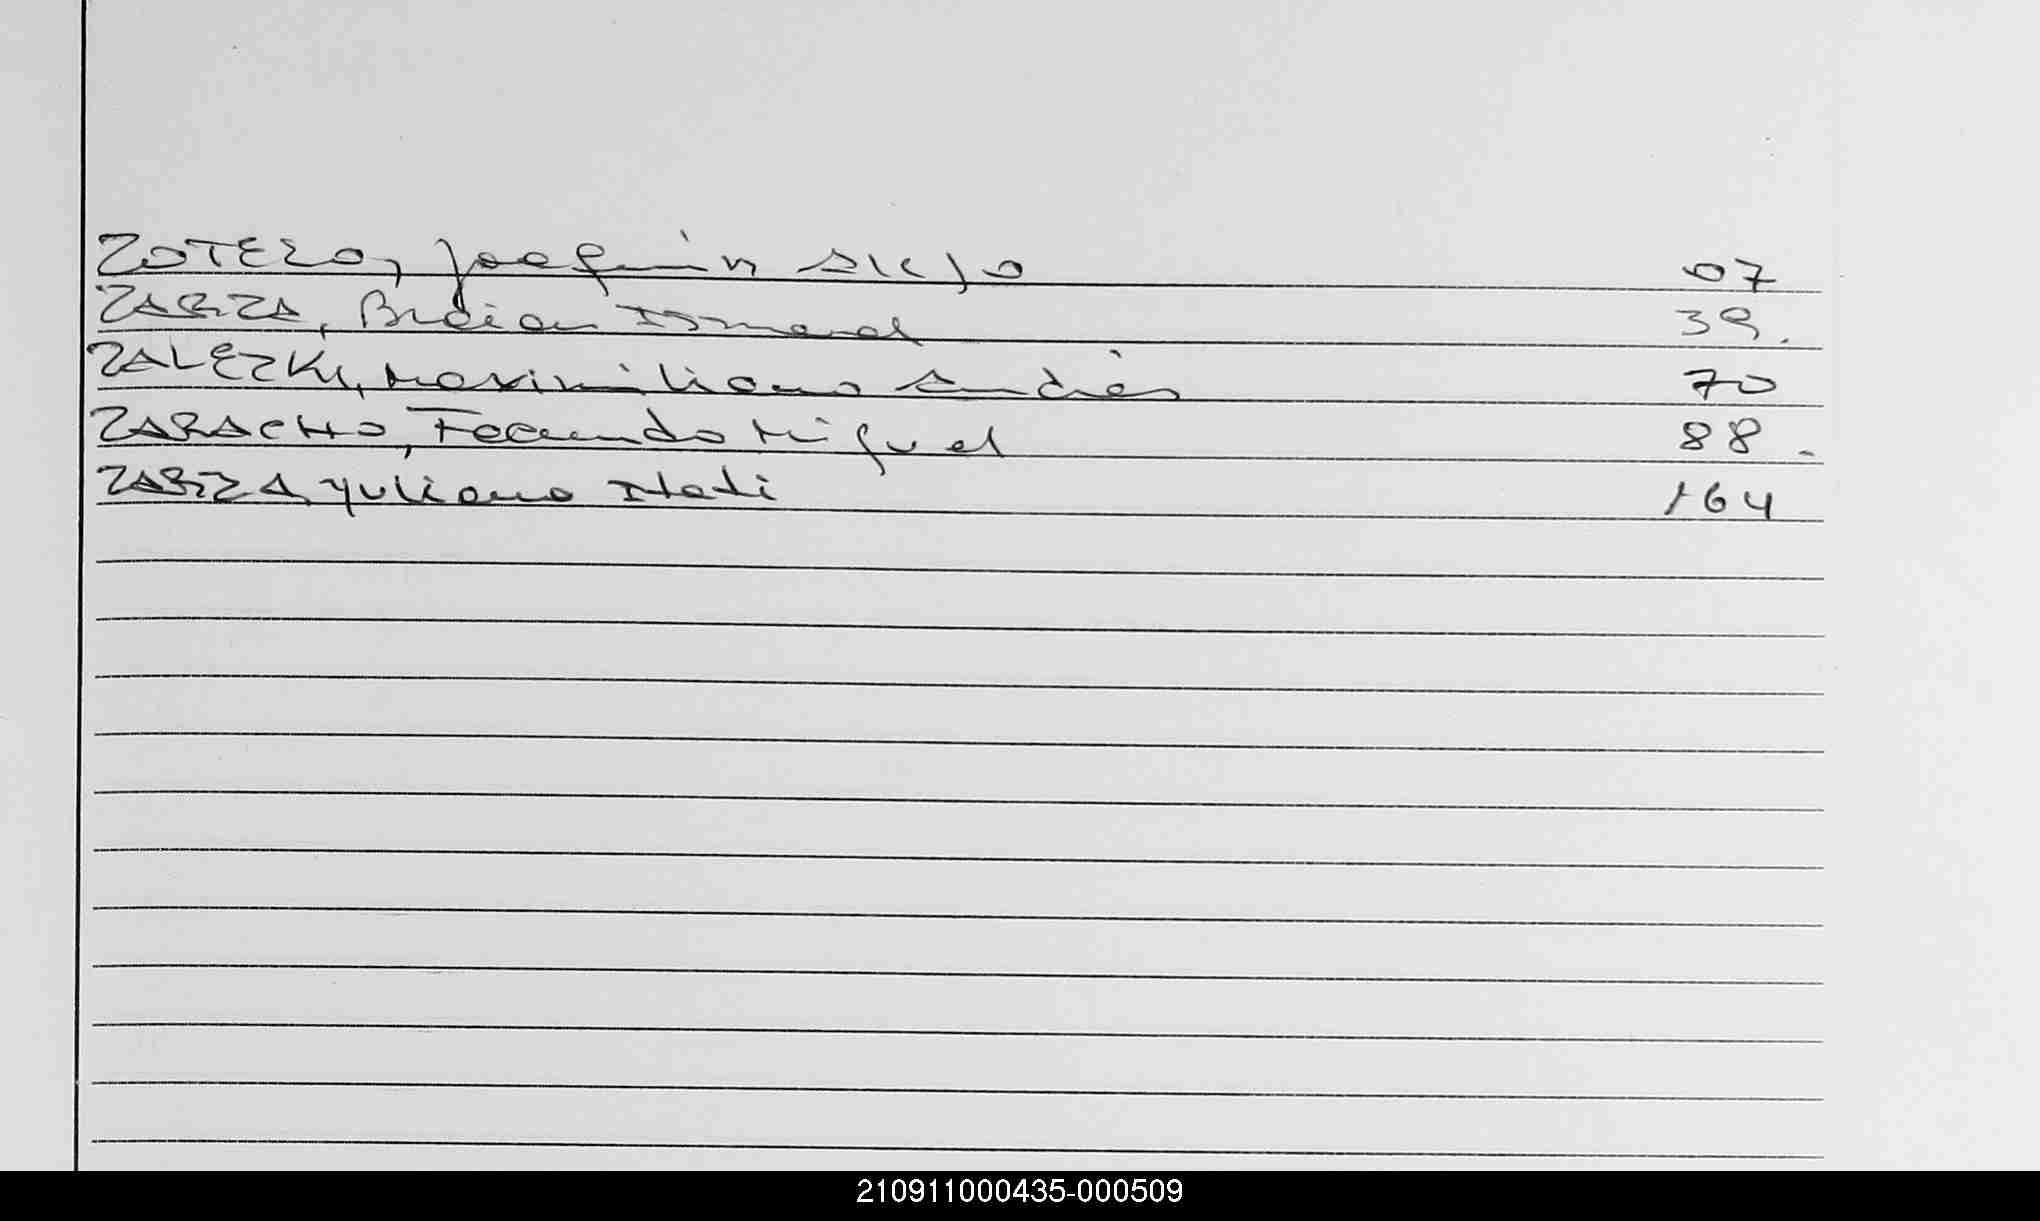 ZOTELO, Joaquín Alejo 07
ZARZA, Braian Ismael 39.
ZALEZKY, Maximiliano Andrés 70
ZARACHO, Facundo Miguel 88.
ZARZA, Yuliana Itati 164
210911000435-000509